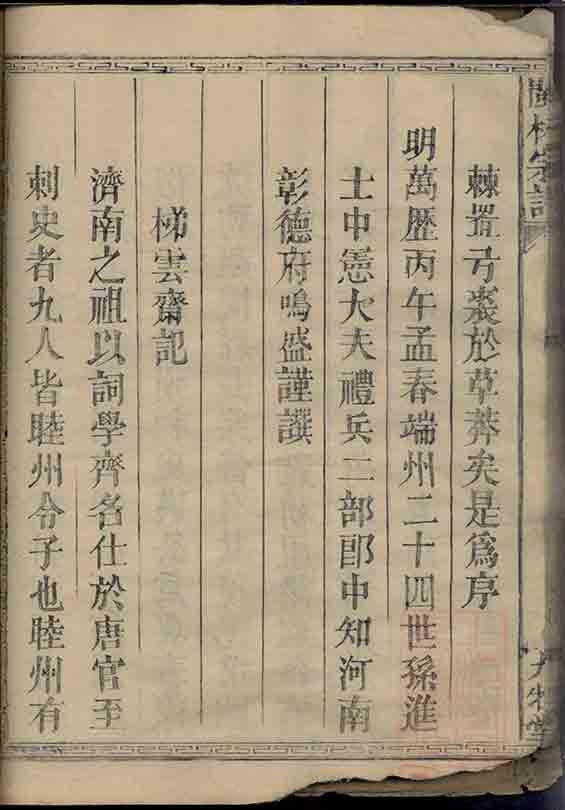 棘置弓裘於草莽矣是爲序
明萬歷丙午孟春端州二十四世孫進
士中憲大夫禮兵二部郎中知河南
彰德府鳴盛謹譔
梯雲齋記
濟南之祖以詞學齊名仕於唐官至
刺史者九人皆睦州令子也睦州有